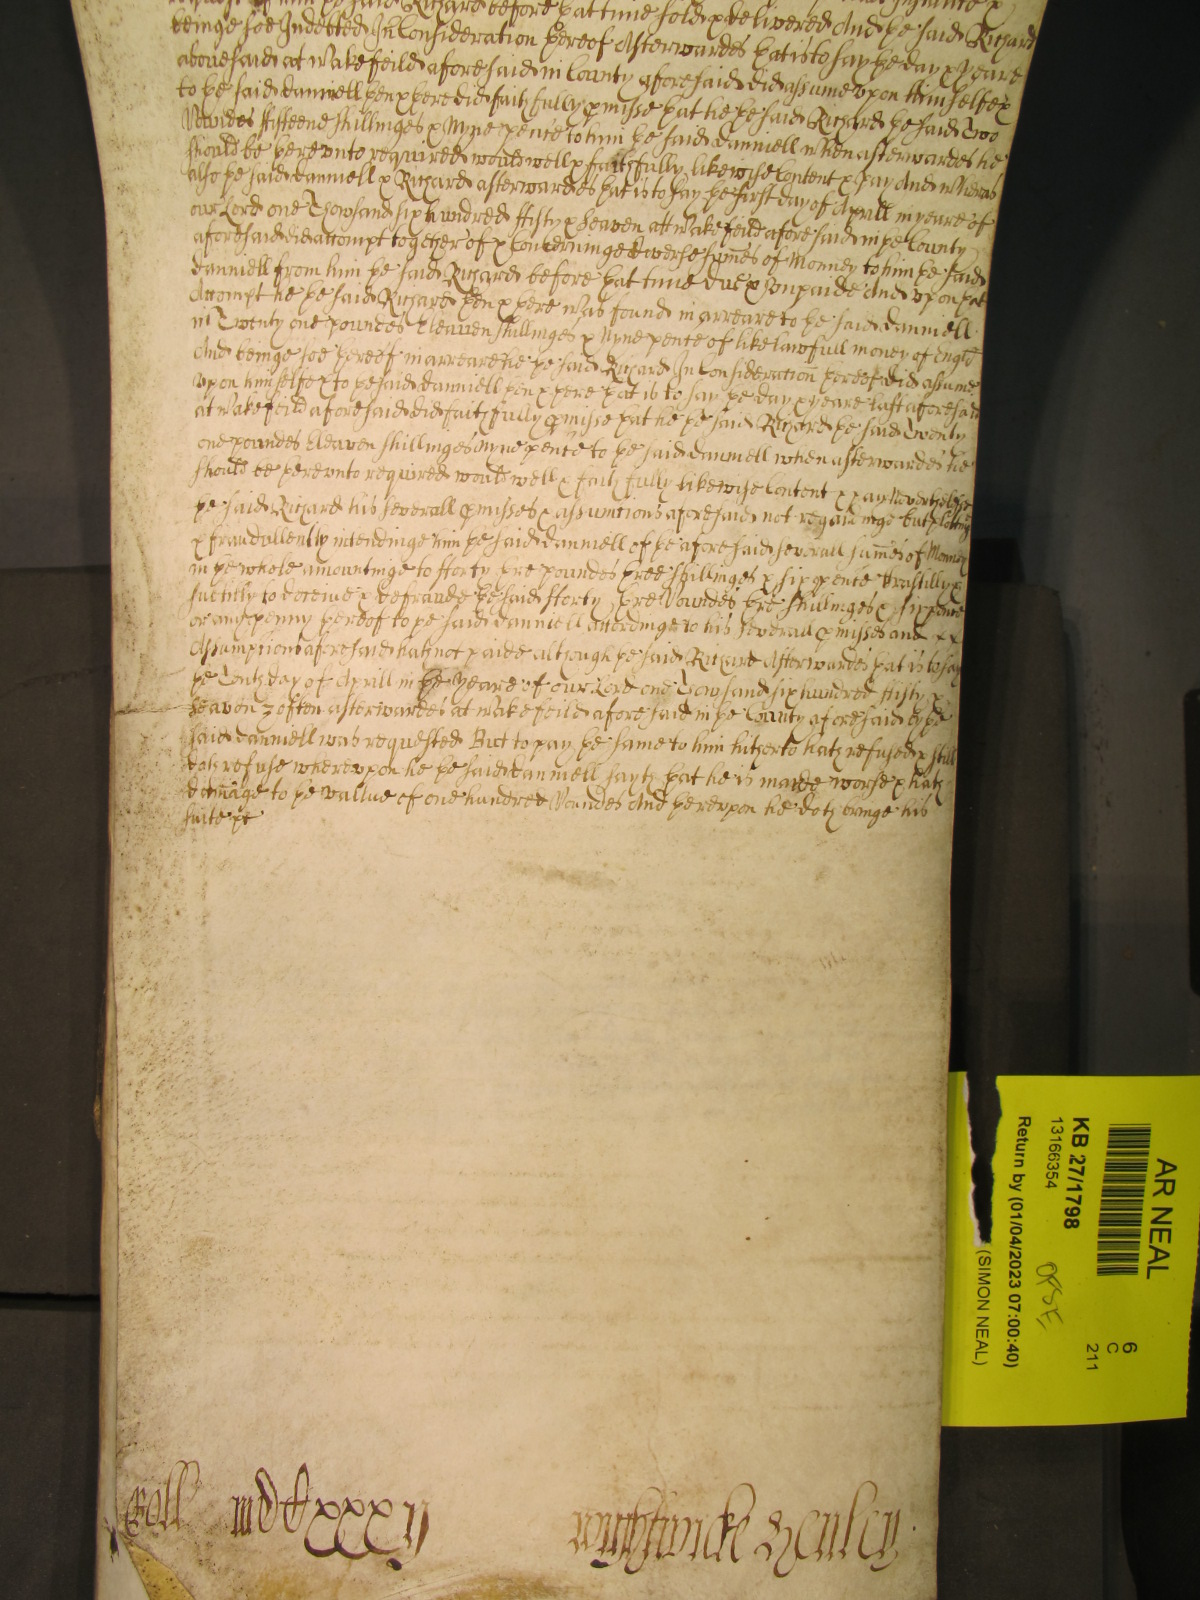 request of him þe said Richard before þat time sold & delivered And þe said Richard
beinge soe Indebted In Consideration þereof Afterwardes þat is to say þe day & yeare
abovesaid at Wakefeild aforesaid in County aforesaid did assume upon himselfe &
to þe said Danniell þen & þere did faithfully pmisse þat he þe said Richard þe said Two
Poundes fifteene shillinges & Nyne pence to him þe said Danniell when afterwardes he
should be þereunto required would well & faithfully likewise Content & Pay And wheras
also þe said Danniell & Richard afterwardes þat is to say þe first day of Aprill in yeare of
our Lord one Thowsand six hundred ffifty & seaven att Wakefeild aforesaid in þe County
aforesaid did accompt together of & Concerninge diverse sumes of Monney to him þe said
Danniell from him þe said Richard before þat time due & unpaide And upon þat
Accompt he þe said Richard þen & þere was found in arreare to þe said Danniell
in Twenty one poundes Eleaven shillinges & Nyne pence of like lawfull money of Engld
And beinge soe þereof in arreare he þe said Richard In Consideration þereof did assume
upon himselfe & to þe said Danniell þen & þere þat is to say þe day & yeare last aforesaid
at Wakefeild aforesaid did faithfully pmisse þat he þe said Richard þe said Twenty
one poundes Eleaven shillinges Nyne pence to þe said Danniell when afterwardes he
should be þereunto required would well & faithfully likewise Content & pay Neverthelesse
þe said Richard his severall pmisses & assumtions aforesaid not regardinge but plotting
& fraudullently intendinge him þe said Danniell of þe aforesaid severall sumes of Monney
in þe whole amountinge to fforty þre poundes þree shillinges & six pence Craftilly &
subtilly to deceive & defraude þe said fforty þre Poundes þre shillinges & six pence
or any penny þereof to þe said Danniell accordinge to his severall pmisses and
Assumptions aforesaid hath not paide although þe said Richard Afterwardes þat is to say
þe Tenth day of Aprill in þe Yeare of our Lord one Thowsand six hundred ffifty &
seaven & often afterwardes at Wakefeild aforesaid in þe County aforesaid by þe
said Danniell was requested But to pay þe same to him hitherto hath refused & still
doth refuse whereupon he þe said Danniell sayth þat he is made worse & hath
damage to þe vallue of one hundred Poundes And þereupon he doth bringe his
suite &c
Roll mdcxxxv
Wightwicke & Henley
AR NEAL
KB 27/1798
13166354
Return by (01/04/2023 07:00:40)
(SIMON NEAL)
6
C
211